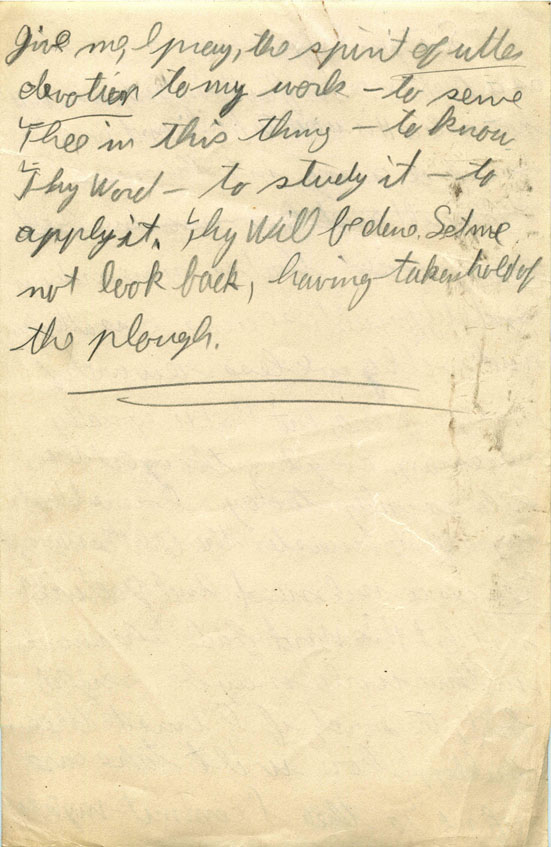 Give me, I pray, the spirit of utter
devotion to my work – to serve
Thee in this thing – to know
Thy Word – to study it – to
apply it. Thy Will be done. Let me
not look back, having taken hold of
the plough.